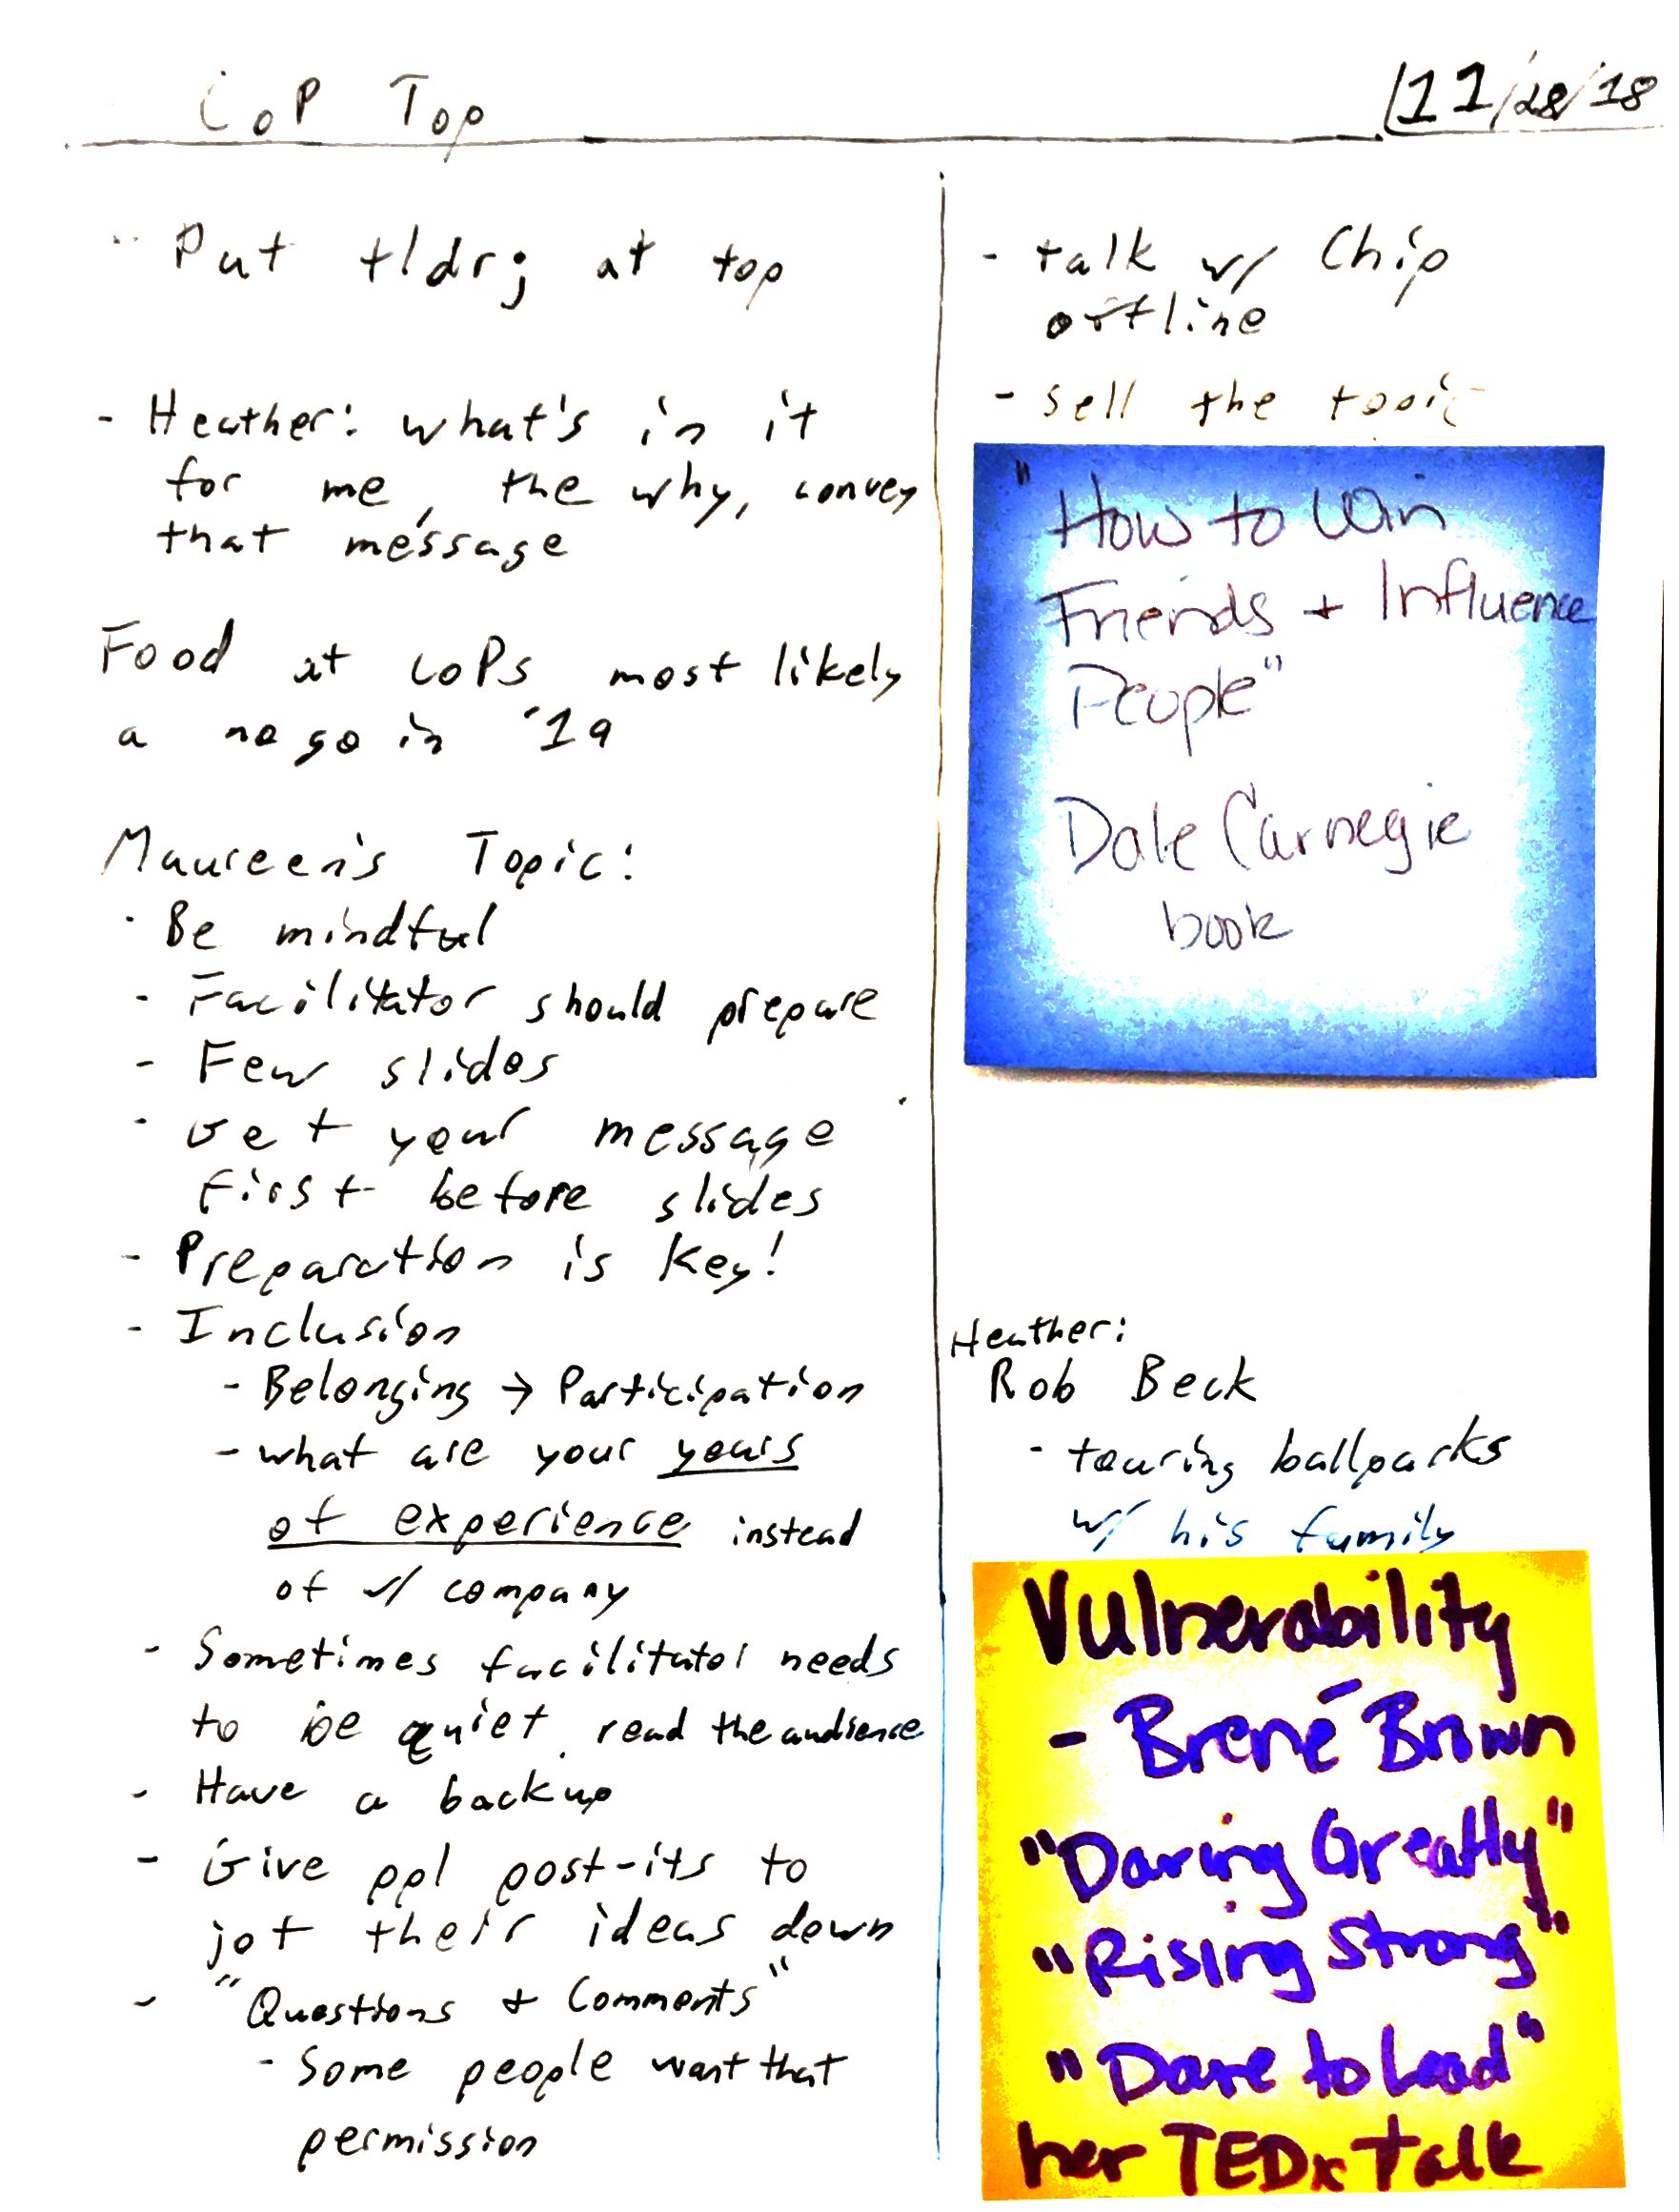 CoP Top
11/28/18
- Put tldr; at top
- Heather: what's in it
for me, the why, convey
that message
Food at CoPs most likely
a no go in '19
Maureen's Topic:
- Be mindful
- Facilitator should prepare
- Few slides
- Get your message
first before slides
- Preparation is key!
- Inclusion
- Belonging → Participation
- what are your years
of experience instead
of w/ company
- Sometimes facilitator needs
to be quiet, read the audience
- Have a backup
- Give ppl post-its to
jot their ideas down
- "Questions + Comments"
- Some people want that
permission
- talk w/ Chip
offline
- sell the topic
"How to Win
Friends + Influence
People"
Dale Carnegie
book
Heather:
Rob Beck
- touring ballparks
w/ his family
Vulnerability
- Brené Brown
"Daring Greatly"
"Rising Strong"
"Dare to Lead"
her TEDx Talk